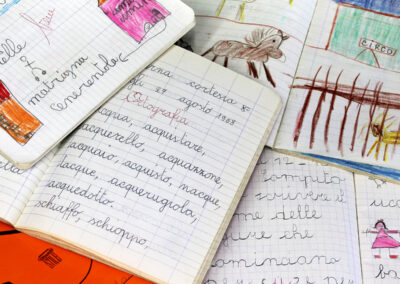 elle
matrigna
Cenerentola
cortesia 8-
27 agosto 1968
Ortografia
acqua, acquistare,
acquerello, acquazzone,
acquaio, acquisto, nacque,
tacque, acquerugiola,
acquedotto.
schiaffo, schioppo,
CIRCO
-12-
Compito
scrivere il
ome delle
gure che
ominciano
ba